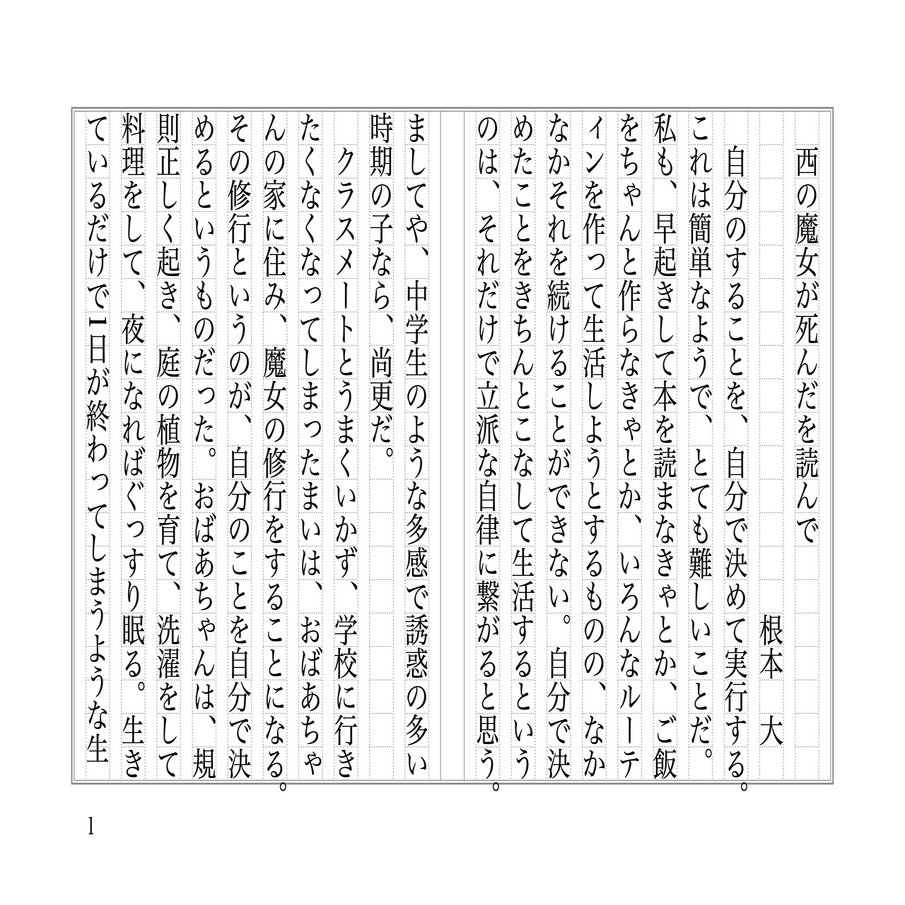 西の魔女が死んだを読んで
根本　大
　自分のすることを、自分で決めて実行する。
これは簡単なようで、とても難しいことだ。
私も、早起きして本を読まなきゃとか、ご飯
をちゃんと作らなきゃとか、いろんなルーテ
ィンを作って生活しようとするものの、なか
なかそれを続けることができない。自分で決
めたことをきちんとこなして生活するという
のは、それだけで立派な自律に繋がると思う。
ましてや、中学生のような多感で誘惑の多い
時期の子なら、尚更だ。
　クラスメートとうまくいかず、学校に行き
たくなくなってしまったまいは、おばあちゃ
んの家に住み、魔女の修行をすることになる。
その修行というのが、自分のことを自分で決
めるというものだった。おばあちゃんは、規
則正しく起き、庭の植物を育て、洗濯をして
料理をして、夜になればぐっすり眠る。生き
ているだけで1日が終わってしまうような生
1